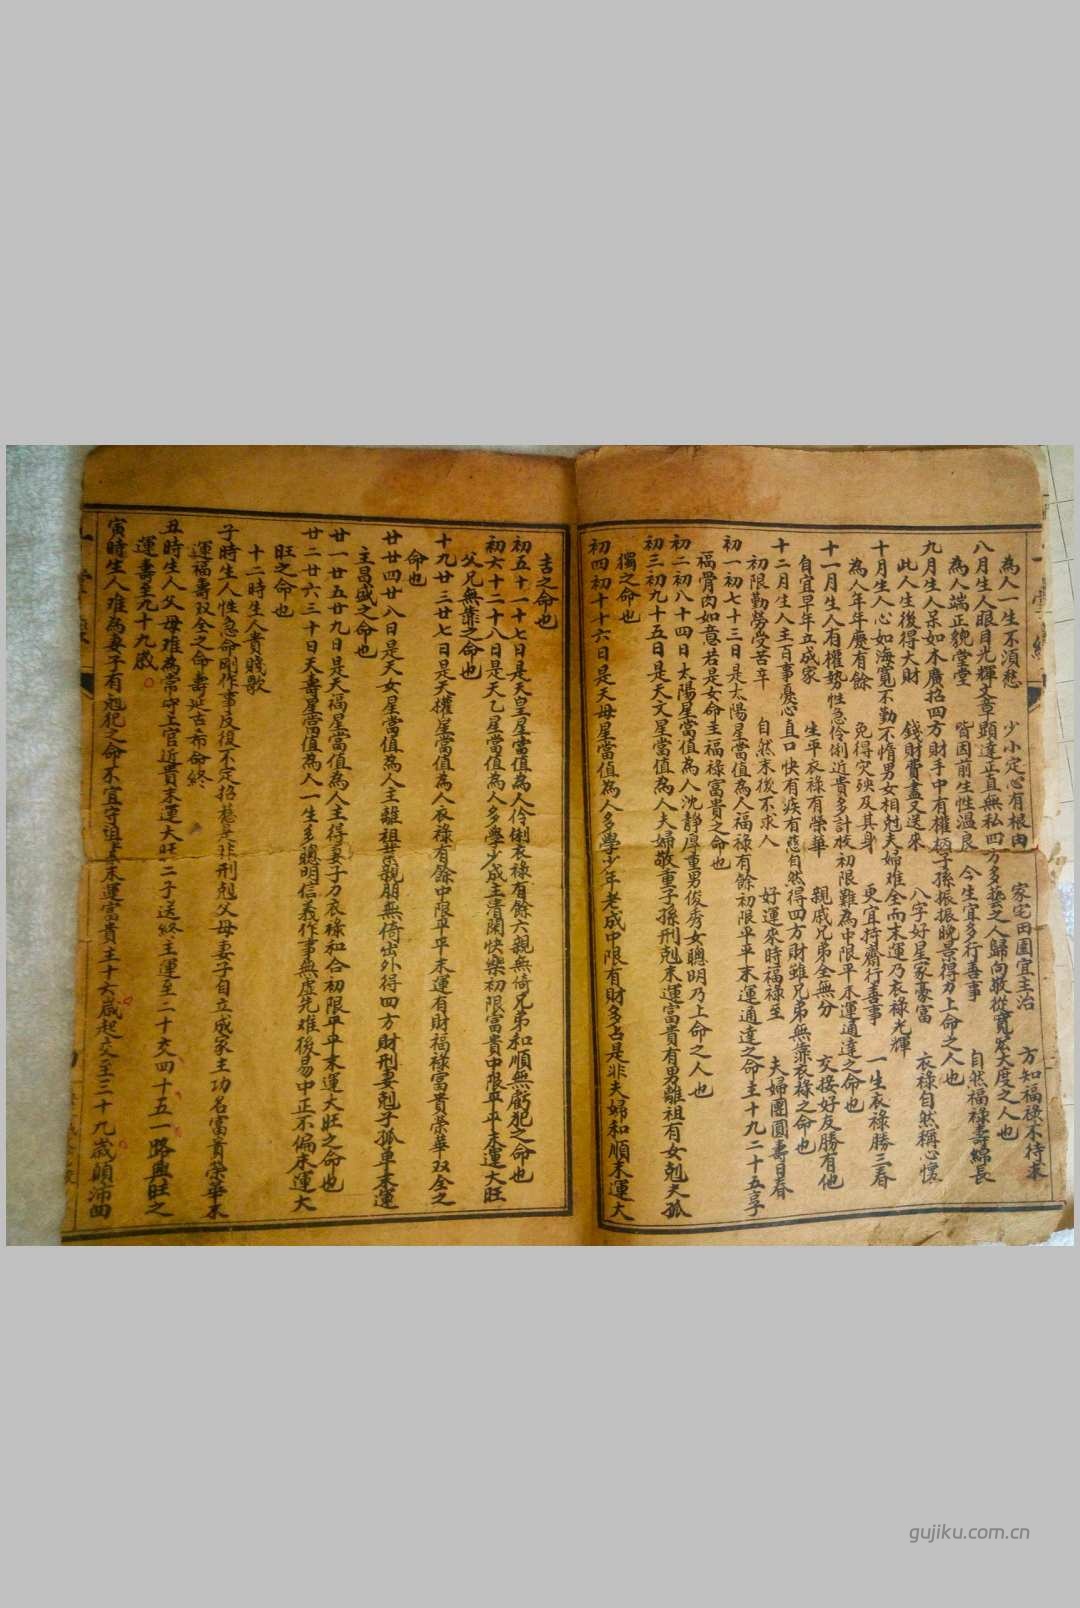 為人一生不須愁 少小定心有根由 家宅田園宜主治 方知福祿不待求
八月生人眼目光輝文章顕達正直無私四方多藝之人歸向敬從寬宏大度之人也
為人端正貌堂堂 皆因前生性温良 今生宜多行善事 自然福祿壽綿長
九月生人呆如木廣招四方財手中有權柄子孫振振晚景得力上命之人也
此人生後得大財 錢財費盡又送來 八字好星家豪富 衣祿自然稱心懷
十月生人心如海寬不勤不惰男女相尅夫婦难全而末運乃衣祿光輝
為人年年慶有餘 免得灾殃及其身 更宜持齋行善事 一生衣祿勝三春
十一月生人有權势性急伶俐近貴多計較初限難為中限平末運通達之命也
自宜早年立成家 生平衣祿有榮華 親戚兄弟全無分 交接好友勝有他
十二月生人主百事憂心直口快有疾有慈自然得四方財雖兄弟無靠衣祿之命也
初限勤勞受苦辛 自然末後不求人 好運來時福祿至 夫婦團圓壽日春
初一初七十三日是太陽星當值為人福祿有餘初限平平末運通達之命主十九二十五享
福骨肉如意若是女命主福祿富貴之命也
初二初八十四日太陽星當值為人沈靜厚重男俊秀女聰明乃上命之人也
初三初九十五日是天文星當值為人夫婦敬重子孫刑尅末運富貴有男離祖有女尅夫孤
獨之命也
初四初十十六日是天母星當值為人多學少年老成中限有財多占是非夫婦和順末運大
吉之命也
初五十一十七日是天皇星當值為人伶俐衣祿有餘六親無倚兄弟和順無虧犯之命也
初六十二十八日是天乙星當值為人多學少成主清閑快樂初限富貴中限平平末運大旺
父兄無靠之命也
十九廿三廿七日是天權星當值為人衣祿有餘中限平平末運有財福祿富貴榮華双全之
命也
廿廿四廿八日是天女星當值為人主離祖業親朋無倚出外得四方財刑妻尅子孤单末運
主昌盛之命也
廿一廿五廿九日是天福星當值為人主得妻子力衣祿和合初限平平末運大旺之命也
廿二廿六三十日天壽星當值為人一生多聰明信義作事無虛先难後易中正不偏末運大
旺之命也
十二時生人貴賤歌
子時生人性急命剛作事反復不定招惹是非刑尅父母妻子自立成家主功名富貴榮華末
運福壽双全之命壽延古希命終
丑時生人父母难為常守上官近貴末運大旺二子送終主運至二十交四十五一路興旺之
運壽至九十九歲
寅時生人难為妻子有尅犯之命不宜守祖業末運富貴主十六歲起交至三十九歲顛沛四
gujiku.com.cn